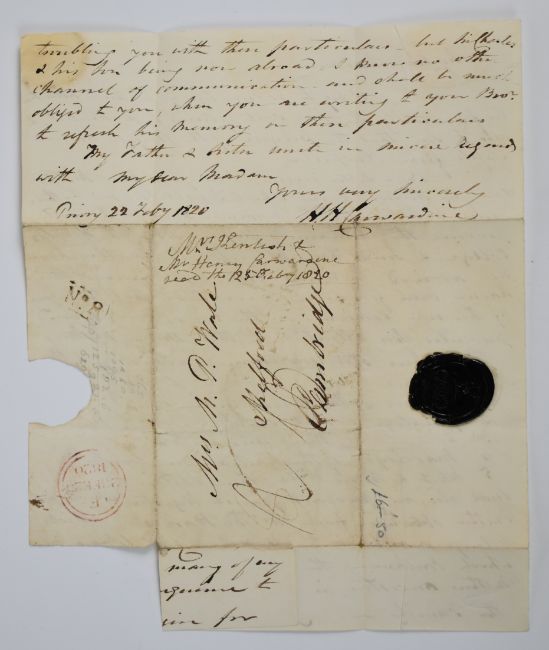 troubling you with these particulars but Sir Charles
& his Son being now abroad, I know no other
channel of communication and shall be much
obliged to you, when you are writing to your Bror.
to refresh his memory on these particulars
My Father & Sister unite in sincere regards
with My Dear Madam
Yours very sincerely
Priory 22 Feby 1820 H H Carwardine
Mr. Kentish &
Mr. Henry Carwardine
recd the 25 Feby 1820
No. 8
Mrs M. P. Wale
Shelford
Cambridge
1820
£6-50
many of my
to
for